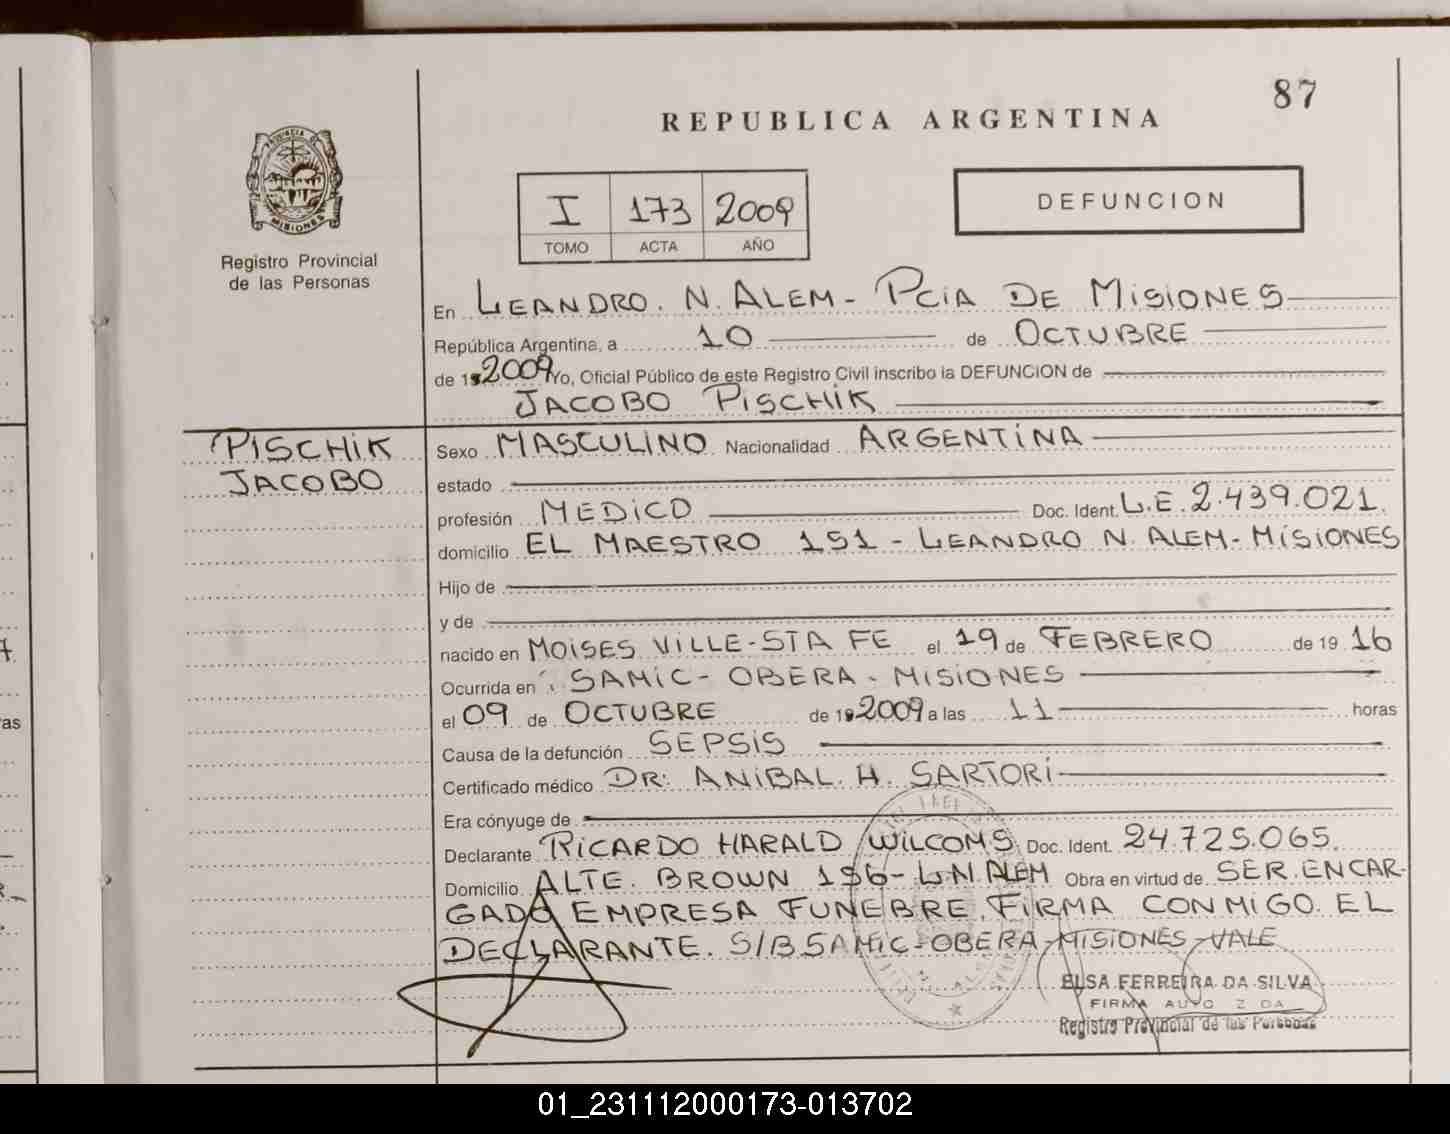 87
REPUBLICA ARGENTINA
PROVINCIA DE
MISIONES
Registro Provincial
de las Personas
I 173 2009
TOMO ACTA AÑO
DEFUNCION
En LEANDRO. N. ALEM - PCIA DE MISIONES
República Argentina, a 10 de OCTUBRE
de 2009 Yo, Oficial Público de este Registro Civil inscribo la DEFUNCION de
JACOBO PISCHIK
PISCHIK
JACOBO
Sexo MASCULINO Nacionalidad ARGENTINA
estado
profesión MEDICO Doc. Ident. L.E. 2.439.021.
domicilio EL MAESTRO 151 - LEANDRO N. ALEM - MISIONES
Hijo de
y de
nacido en MOISES VILLE - STA FE el 19 de FEBRERO de 19 16
Ocurrida en SAMIC - OBERA - MISIONES
el 09 de OCTUBRE de 2009 a las 11 horas
Causa de la defunción SEPSIS
Certificado médico DR: ANIBAL. H. SARTORI
Era cónyuge de
Declarante RICARDO HARALD WILCOMS Doc. Ident. 24.725.065.
Domicilio ALTE. BROWN 196 - L.N. ALEM Obra en virtud de SER ENCAR-
GADO EMPRESA FUNEBRE. FIRMA CONMIGO EL
DECLARANTE. S/B SAMIC - OBERA - MISIONES - VALE
ELSA FERREIRA DA SILVA
FIRMA
Registro Provincial de las Personas
01_231112000173-013702